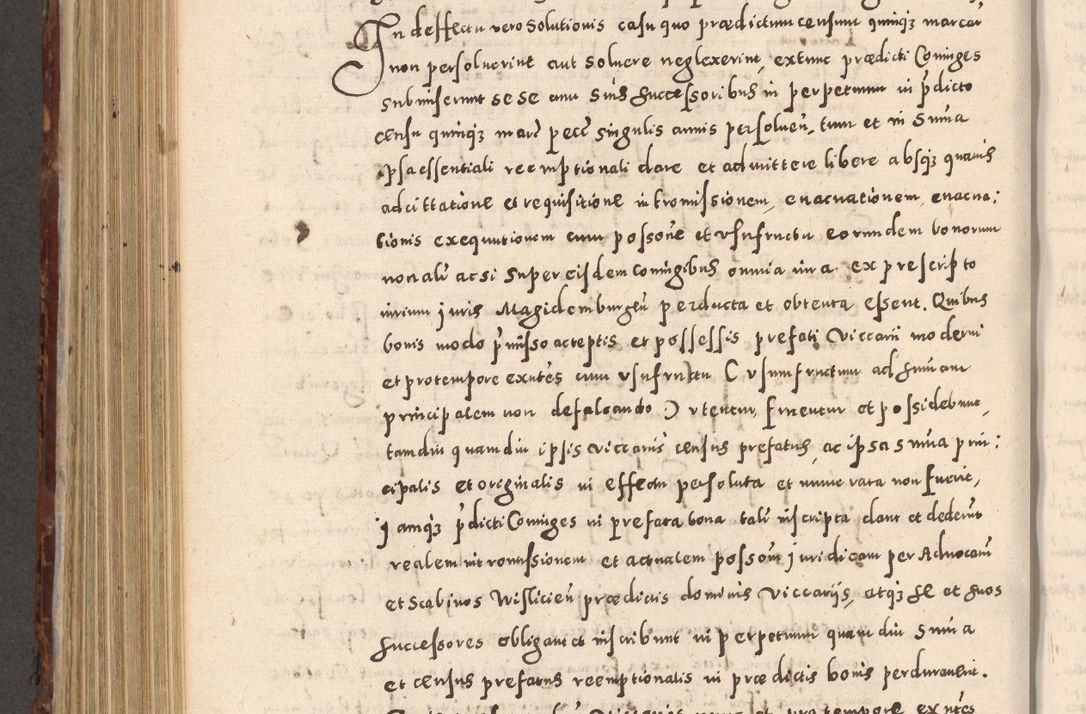 In deffectu vero Solutionis casu quo prædictum censum quinqz marcar
non persoluerint aut Soluere neglexerint, extunc prædicti Coniuges
Submiserunt Sese cum Suis Successoribus in perpetuum in pdicto
censu quinqz marc pecc Singulis annis persoluen, tum et in Suma
ipsa essentiali reemptionali dare et admittere libere absqz quauis
adcittatione et requisitione intromissionem, euacuationem, euacua:
tionis exequutionem cum possone et vsufructu eorundem bonorum
non aliu ac si Super eisdem coniugibus omnia iura ex prescripto
iurium juris Magidemburgen perducta et obtenta essent. Quibus
bonis modo pmisso acceptis et possessis prefati Viccarii moderni
et protempore exntes cum vsufructu ( vsumfructum ad Sumam
principalem non defalcando ) vtentur, fruentur et possidebunt,
tamdiu quamdiu ipsis viccariis census prefatus, ac ipsa Suma prin:
cipalis et originalis in effectu persoluta et numerata non fuerit,
jamqz pdicti Coniuges in prefata bona tali inscripta dant et dederunt
realem intromissionem et actualem possom juridicam per Aduocatum
et Scabinos Wislicien prædictis dominis Viccariis, atqz se et suos
Successores obligant et inscribunt in perpetuum quam diu Suma
et census prefatus reemptionalis in prædictis bonis perdurauerit.